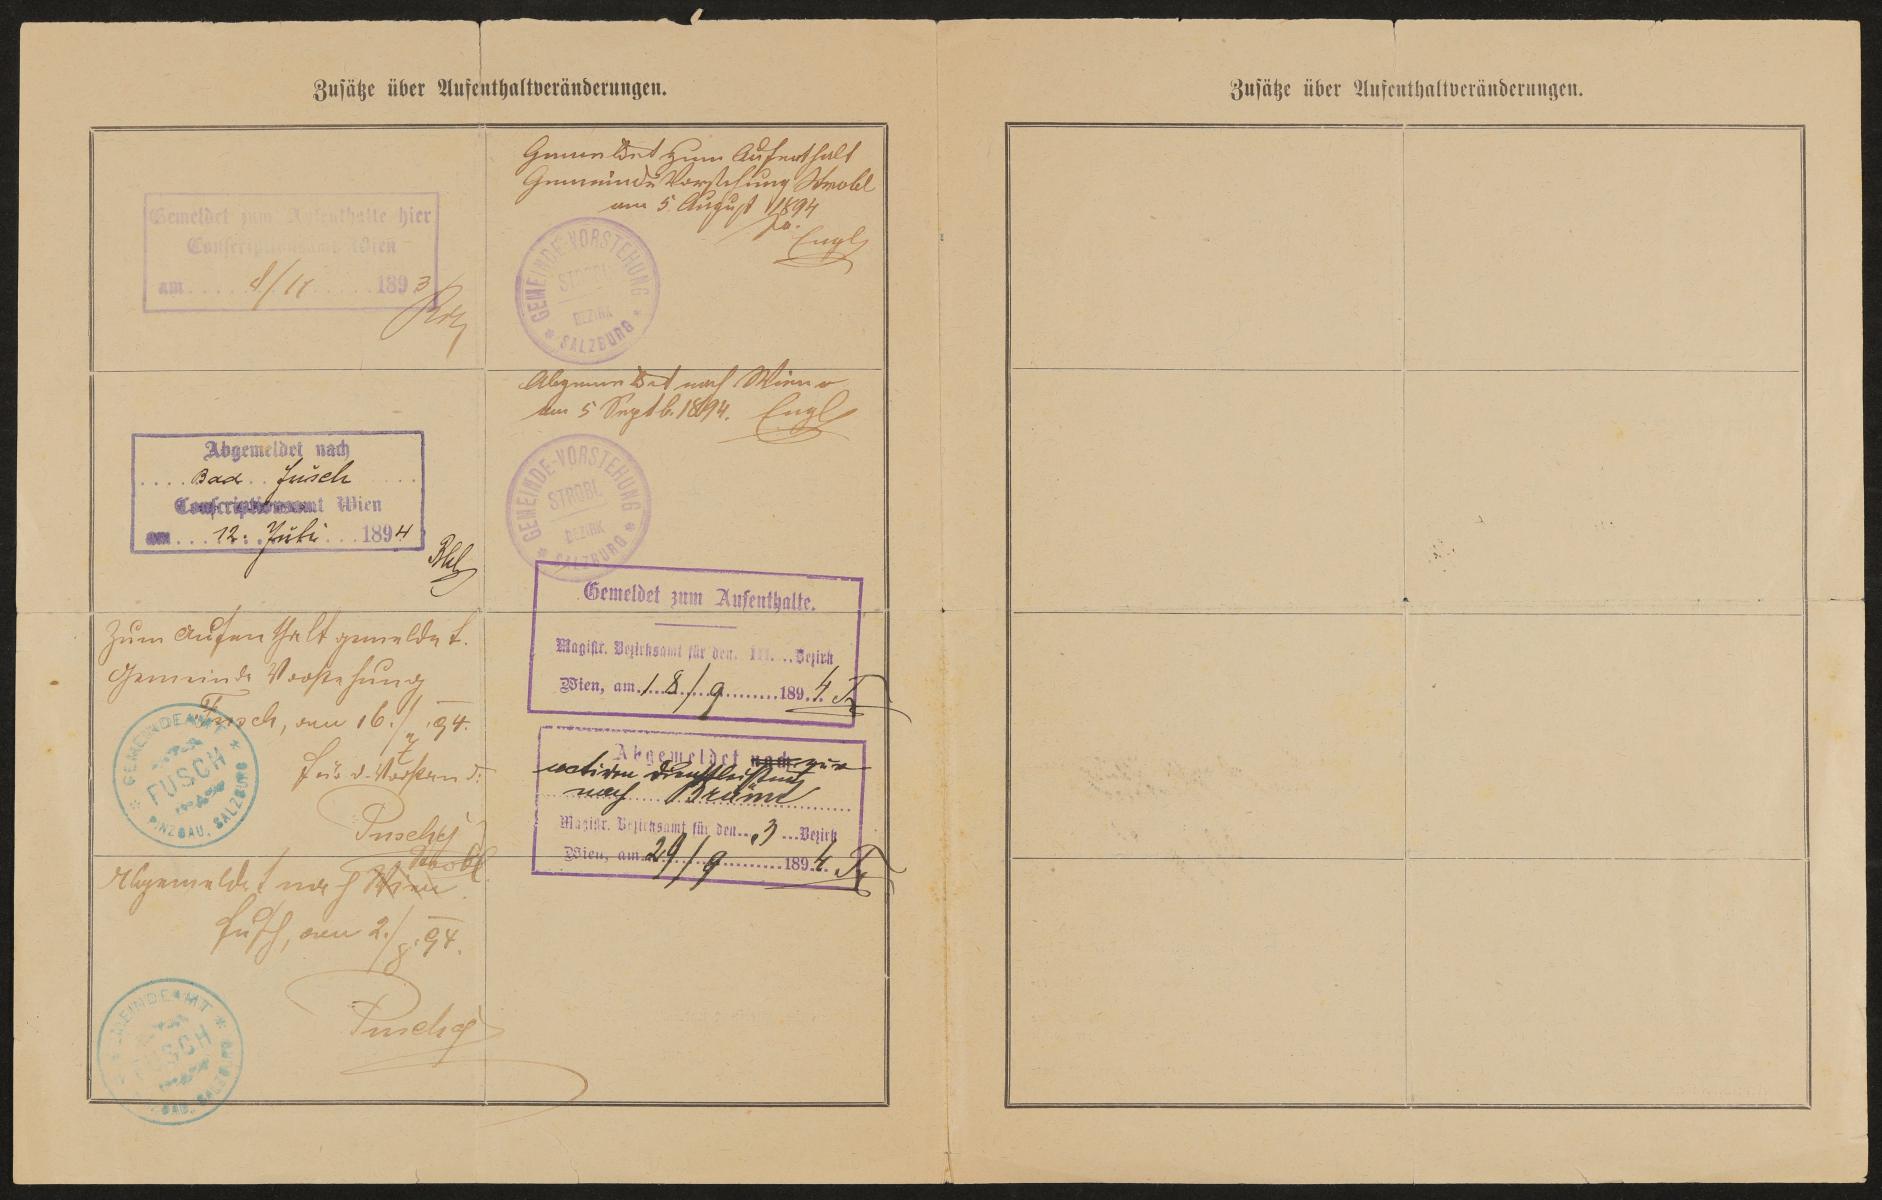 Zusätze über Aufenthaltveränderungen.
Gemeldet zum Aufenthalte hier
Conscriptionsamt Wien
am 1893
Abgemeldet nach
Bad Fusch
Conscriptionsamt Wien
am 12. Juli 1894
Zum Aufenthalt gemeldet.
Gemeinde Vorstehung
Fusch, am 16./7. 94.
Für d. Vorstand:
GEMEINDEAMT
FUSCH
PINZGAU, SALZBURG
Strobl
Abgemeldet nach Wien
Fusch, am 2./8. 94.
GEMEINDEAMT
FUSCH
PINZGAU, SALZBURG
Gemeldet zum Aufenthalt
Gemeinde Vorstehung Strobl
am 5. August 1894
Engl
GEMEINDE-VORSTEHUNG
STROBL
BEZIRK
SALZBURG
Abgemeldet nach Wien
am 5 Septb. 1894. Engl
GEMEINDE-VORSTEHUNG
STROBL
BEZIRK
SALZBURG
Gemeldet zum Aufenthalte.
Magistr. Bezirksamt für den III. Bezirk
Wien, am 18/9 1894
Abgemeldet nach zur
activen Dienstleistung
nach Brünn
Magistr. Bezirksamt für den 3 Bezirk
Wien, am 29/9 1894
Zusätze über Aufenthaltveränderungen.